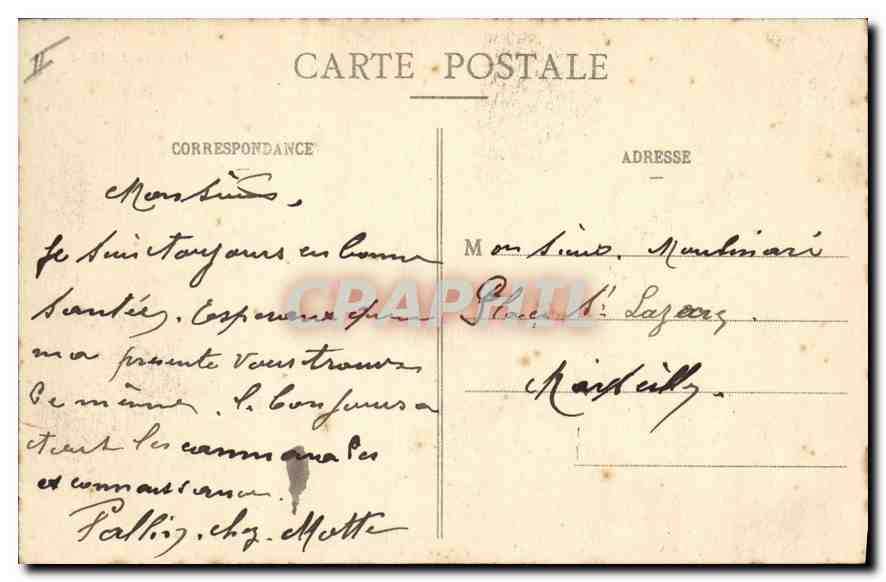 II
CARTE POSTALE
CORRESPONDANCE
Monsieur,
Je suis toujours en bonne
santées. Esperant que
ma presente vous trouve
de même. le bonjours a
tout les cammarades
et connaissance.
chez Motte
ADRESSE
Monsieur. Moulinari
Place St Lazare
Marseille.
CRAPHIL